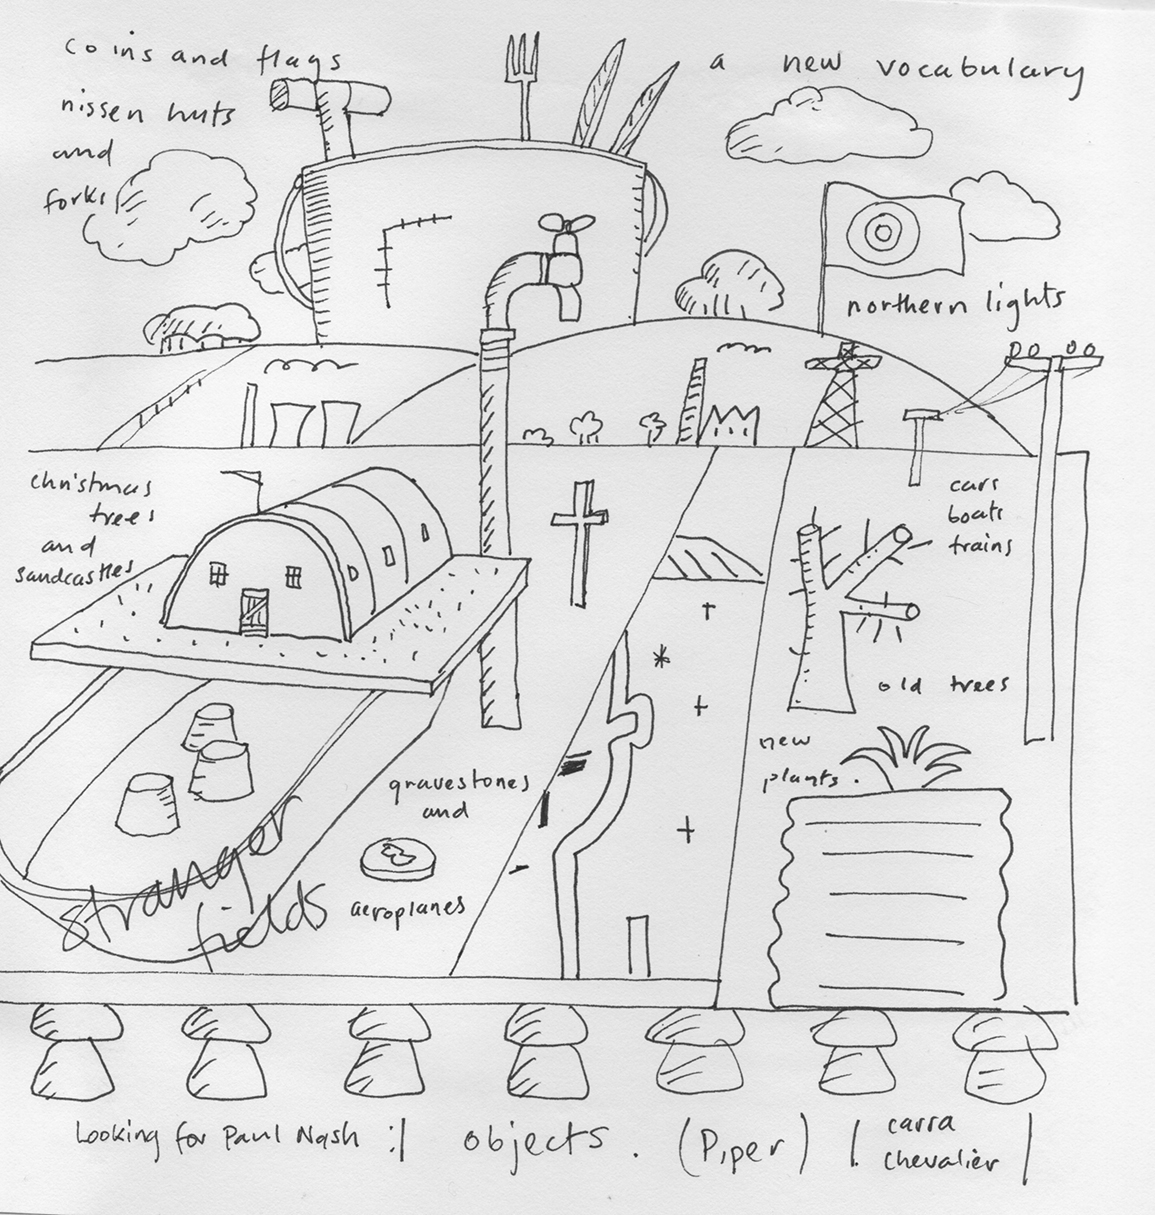 coins and flags
nissen huts
and
forks
a new vocabulary
northern lights
christmas
trees
and
sandcastles
cars
boats
trains
old trees
new
plants.
gravestones
and
aeroplanes
stranger
fields
Looking for Paul Nash :| objects. (Piper) |. carra
chevalier |